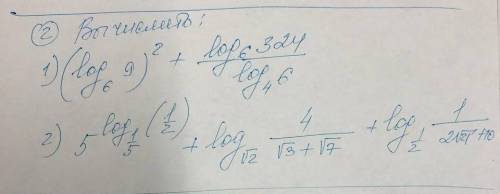 ② Вычислить:
1) (log₆ 9)² + log₆ 324 / log₄ 6
2) 5^(log_(1/5) (1/2)) + log_(√2) 4/(√3+√7) + log_(1/2) 1/(2√21+10)